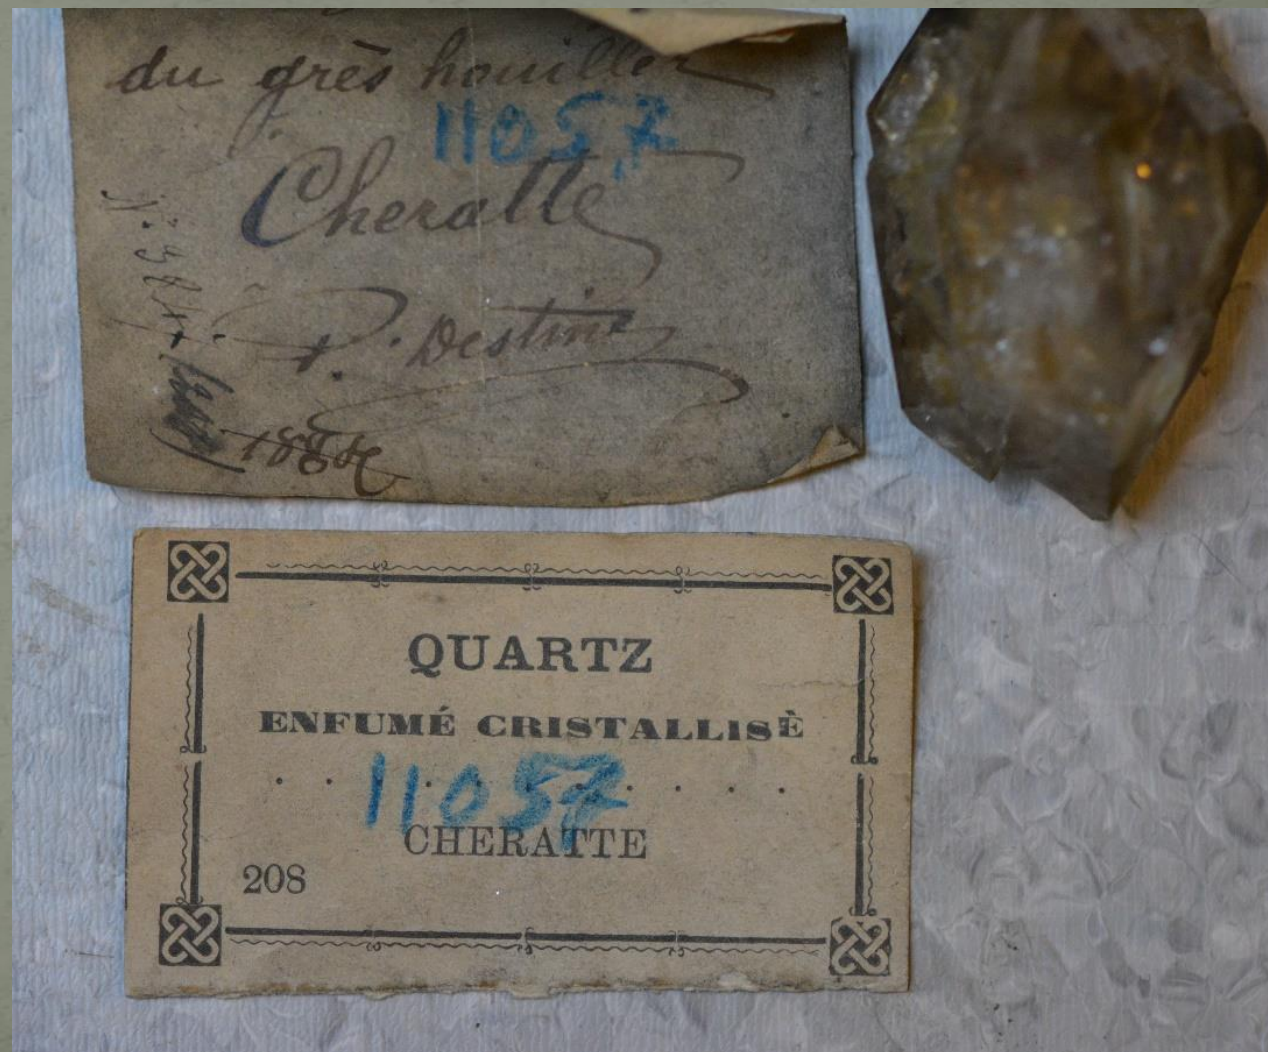 du grès houiller
11057
Cheratte
P. Destinez
QUARTZ
ENFUMÉ CRISTALLISÈ
11057
CHERATTE
208